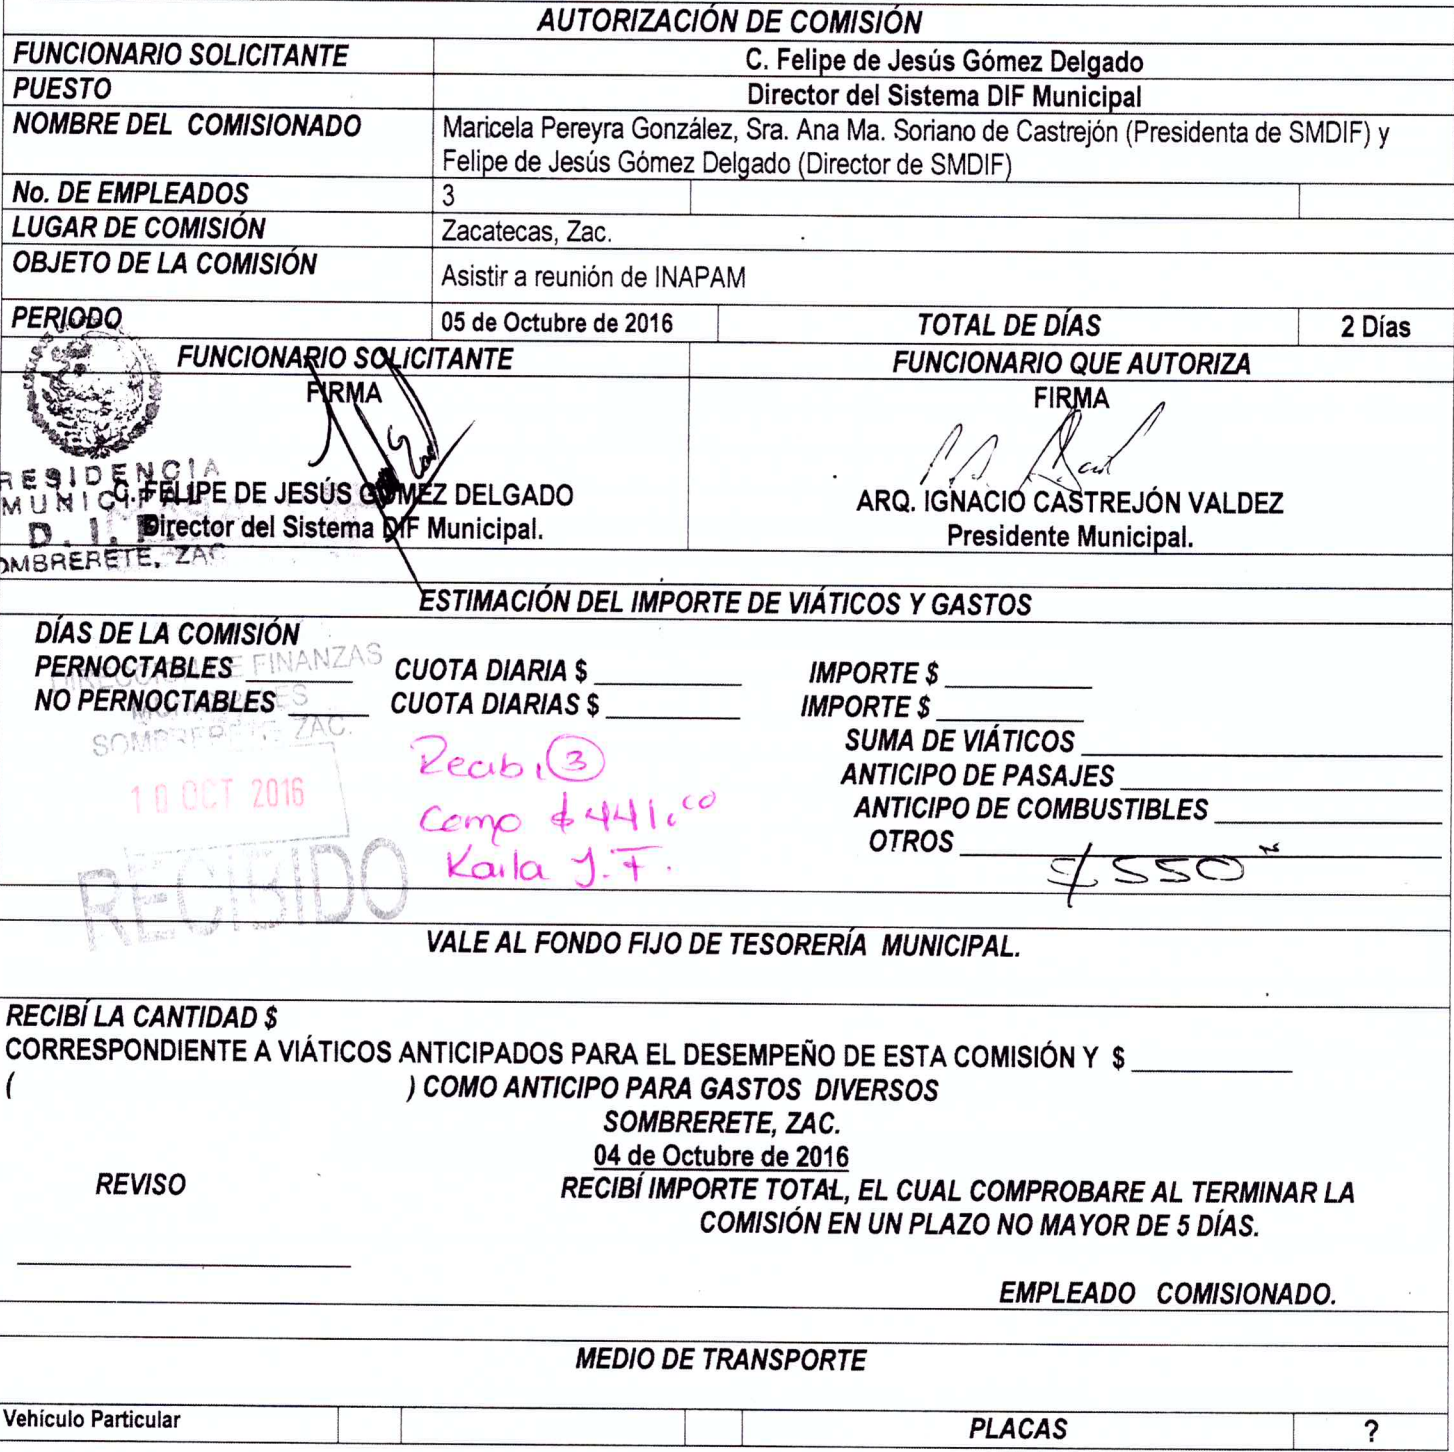 AUTORIZACIÓN DE COMISIÓN
FUNCIONARIO SOLICITANTE C. Felipe de Jesús Gómez Delgado
PUESTO Director del Sistema DIF Municipal
NOMBRE DEL COMISIONADO Maricela Pereyra González, Sra. Ana Ma. Soriano de Castrejón (Presidenta de SMDIF) y
Felipe de Jesús Gómez Delgado (Director de SMDIF)
No. DE EMPLEADOS 3
LUGAR DE COMISIÓN Zacatecas, Zac.
OBJETO DE LA COMISIÓN Asistir a reunión de INAPAM
PERIODO 05 de Octubre de 2016 TOTAL DE DÍAS 2 Días
FUNCIONARIO SOLICITANTE FUNCIONARIO QUE AUTORIZA
FIRMA FIRMA
RESIDENCIA
MUNICI
D. I. F.
OMBRERETE, ZAC
C. FELIPE DE JESÚS GÓMEZ DELGADO ARQ. IGNACIO CASTREJÓN VALDEZ
Director del Sistema DIF Municipal. Presidente Municipal.
ESTIMACIÓN DEL IMPORTE DE VIÁTICOS Y GASTOS
DÍAS DE LA COMISIÓN
PERNOCTABLES ______ CUOTA DIARIA $ ______ IMPORTE $ ______
NO PERNOCTABLES ______ CUOTA DIARIAS $ ______ IMPORTE $ ______
DIRECCIÓN DE FINANZAS
SOMBRERETE, ZAC.
10 OCT 2016
RECIBIDO
Recibi 3
Comp $441.00
Karla J. F.
SUMA DE VIÁTICOS ______
ANTICIPO DE PASAJES ______
ANTICIPO DE COMBUSTIBLES ______
OTROS ______
$ 550
VALE AL FONDO FIJO DE TESORERÍA MUNICIPAL.
RECIBÍ LA CANTIDAD $
CORRESPONDIENTE A VIÁTICOS ANTICIPADOS PARA EL DESEMPEÑO DE ESTA COMISIÓN Y $ ______
( ) COMO ANTICIPO PARA GASTOS DIVERSOS
SOMBRERETE, ZAC.
04 de Octubre de 2016
REVISO RECIBÍ IMPORTE TOTAL, EL CUAL COMPROBARE AL TERMINAR LA
COMISIÓN EN UN PLAZO NO MAYOR DE 5 DÍAS.
EMPLEADO COMISIONADO.
MEDIO DE TRANSPORTE
Vehículo Particular PLACAS ?